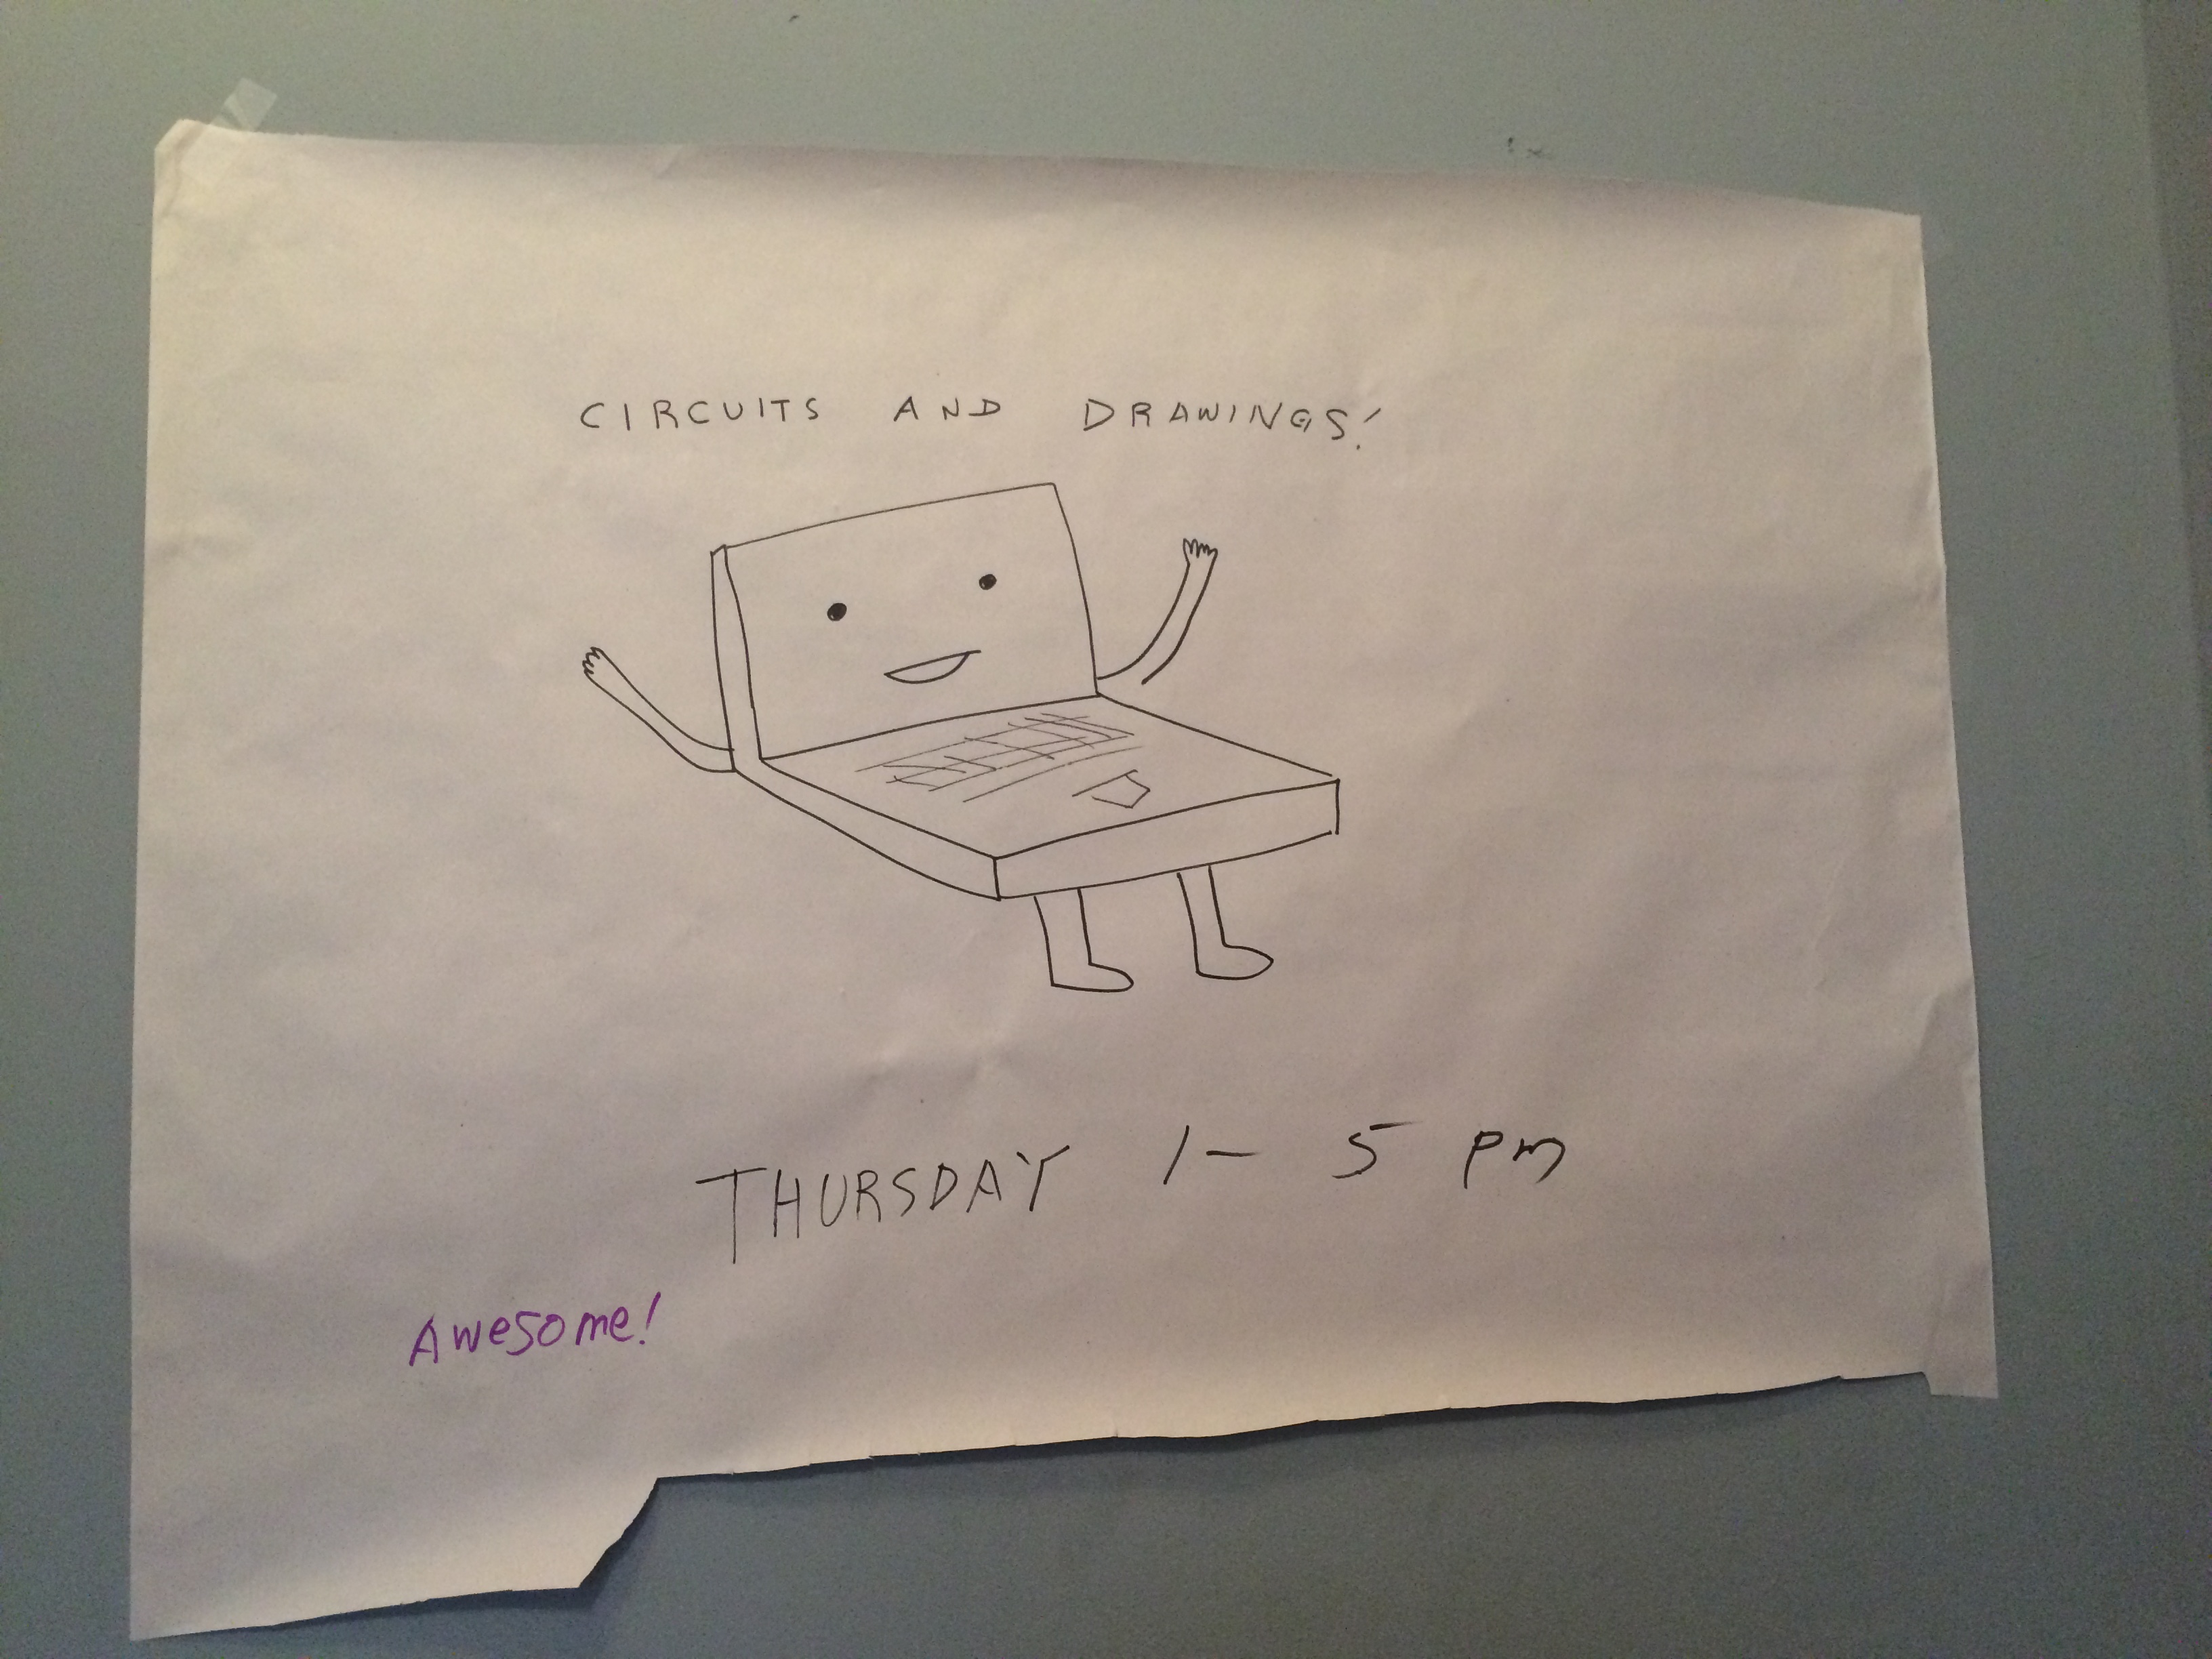 CIRCUITS AND DRAWINGS!
THURSDAY 1 - 5 pm
Awesome!